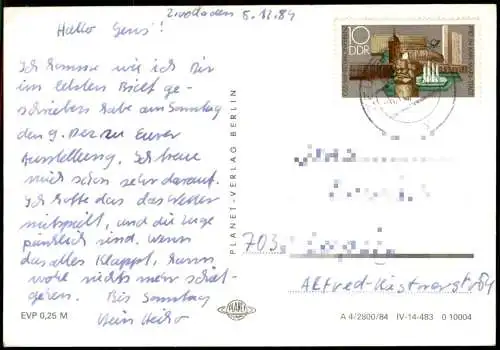 5.12.84
Hallo Jens!
Ich komme wie ich Dir
im letzten Brief ge-
schrieben habe am Sonntag
den 9. Dez zu Eurer
Ausstellung. Ich freue
mich schon sehr darauf.
Ich hoffe das das Wetter
mitspielt, und die Züge
pünktlich sind. Wenn
das alles klappt, kann
wohl nichts mehr schief-
gehen. Bis Sonntag
Dein Heiko
EVP 0,25 M
PLANET-VERLAG BERLIN
PLANET
10
DDR
703
Alfred-Kästnerstr
A 4/2800/84 IV-14-483 0 10004